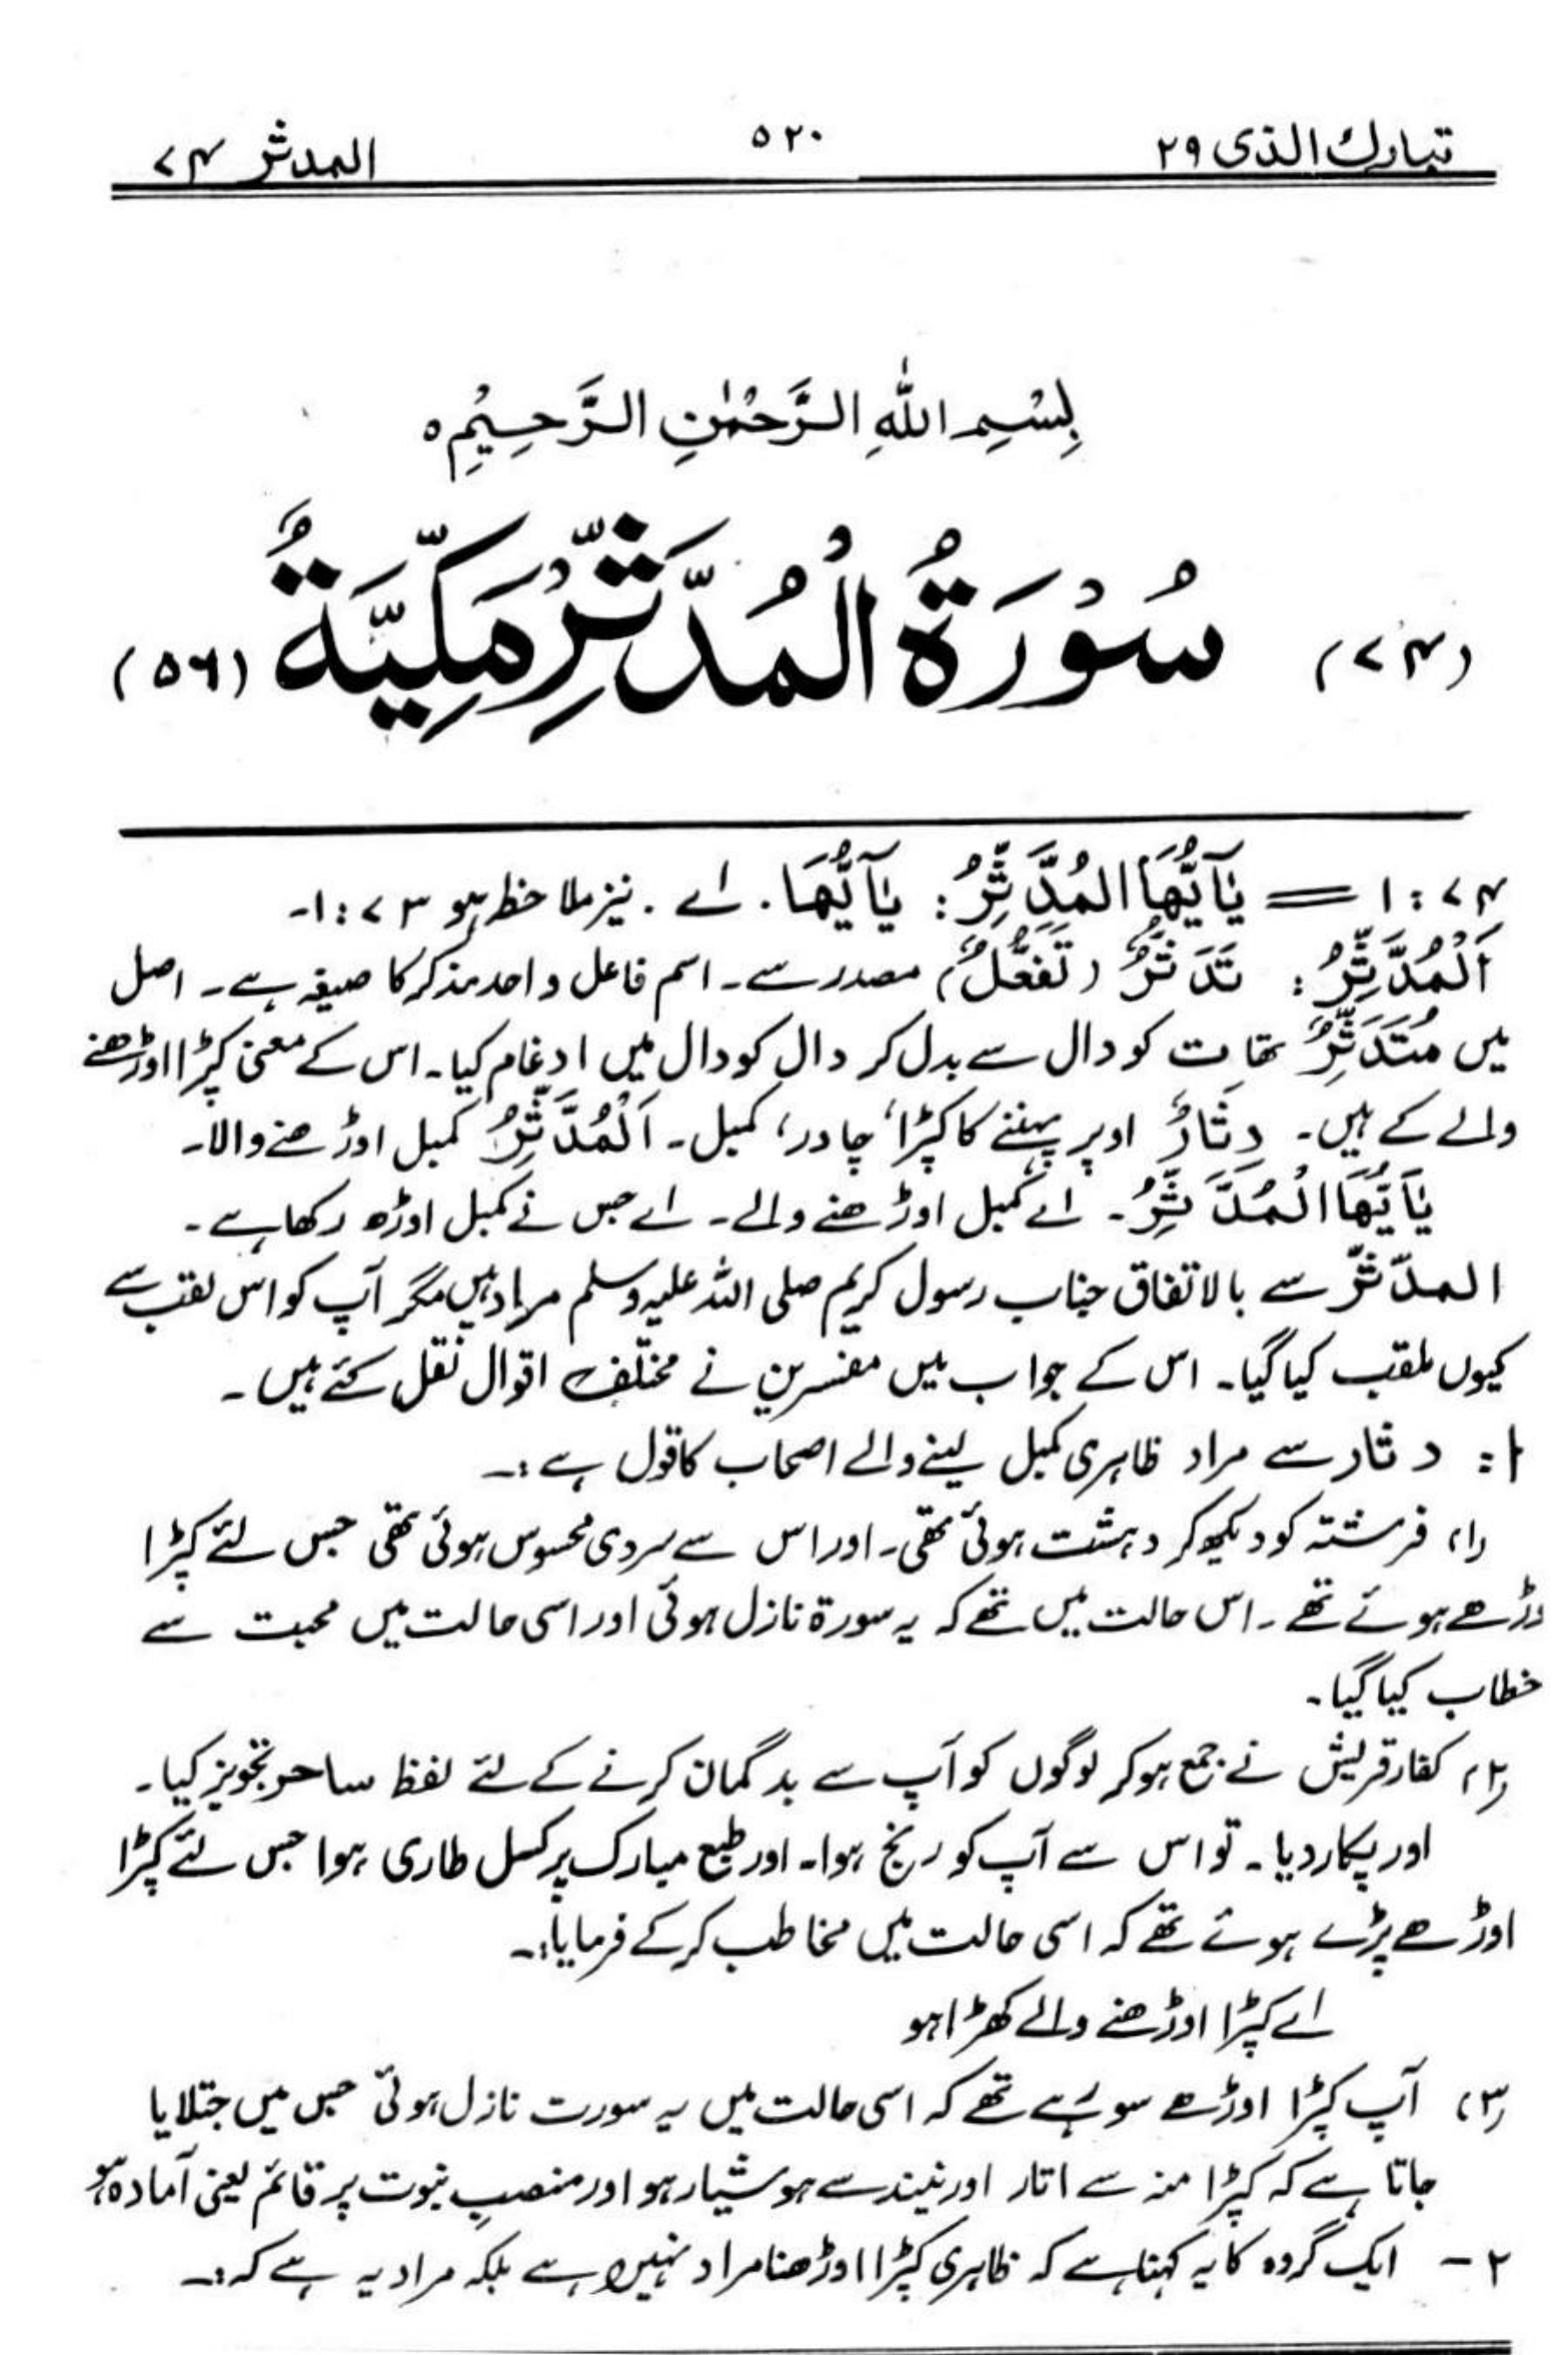 تبارك الذی ۲۹ ۵۲۰ المدثر ۷۴
بِسْمِ اللهِ الرَّحْمٰنِ الرَّحِيْمِ ه
(۷۴) سُوْرَةُ الْمُدَّثِّرِ مَكِّيَّةٌ (۵۶)
۷۴ : ۱ = يٰٓاَيُّهَا الْمُدَّثِّرُ : يٰٓاَيُّهَا . اے . نیز ملاحظہ ہو ۷۳ : ۱-
اَلْمُدَّثِّرُ : تَدَثُّرٌ (تَفَعُّلٌ) مصدر سے ۔ اسم فاعل واحد مذکر کا صیغہ ہے ۔ اصل
میں مُتَدَثِّرٌ تھا ت کو دال سے بدل کر دال کو دال میں ادغام کیا ۔ اس کے معنی کپڑا اوڑھنے
والے کے ہیں ۔ دِثَارٌ اوپر پہننے کا کپڑا، چادر، کمبل ۔ اَلْمُدَّثِّرُ کمبل اوڑھنے والا ۔
يٰٓاَيُّهَا الْمُدَّثِّرُ ۔ اے کمبل اوڑھنے والے ۔ اے جس نے کمبل اوڑھ رکھا ہے ۔
المدّثّر سے بالاتفاق جناب رسول کریم صلی اللہ علیہ وسلم مراد ہیں مگر آپ کو اس لقب سے
کیوں ملقب کیا گیا ۔ اس کے جواب میں مفسرین نے مختلف اقوال نقل کئے ہیں ۔
۱ : دثار سے مراد ظاہری کمبل لینے والے اصحاب کا قول ہے :۔
(۱) فرشتہ کو دیکھ کر دہشت ہوئی تھی ۔ اور اس سے سردی محسوس ہوئی تھی جس لئے کپڑا
وڑھے ہوئے تھے ۔ اس حالت میں تھے کہ یہ سورۃ نازل ہوئی اور اسی حالت میں محبت سے
خطاب کیا گیا ۔
(۲) کفار قریش نے جمع ہو کر لوگوں کو آپ سے بدگمان کرنے کے لئے لفظ ساحر تجویز کیا ۔
اور پکار دیا ۔ تو اس سے آپ کو رنج ہوا ۔ اور طبع مبارک پر کسل طاری ہوا جس لئے کپڑا
اوڑھے پڑے ہوئے تھے کہ اسی حالت میں مخاطب کر کے فرمایا :۔
اے کپڑا اوڑھنے والے کھڑا ہو
(۳) آپ کپڑا اوڑھے سو رہے تھے کہ اسی حالت میں یہ سورت نازل ہوئی جس میں جتلایا
جاتا ہے کہ کپڑا منہ سے اتار اور نیند سے ہوشیار ہو اور منصبِ نبوت پر قائم یعنی آمادہ ہو
۲ – ایک گروہ کا یہ کہنا ہے کہ ظاہری کپڑا اوڑھنا مراد نہیں ہے بلکہ مراد یہ ہے کہ :۔